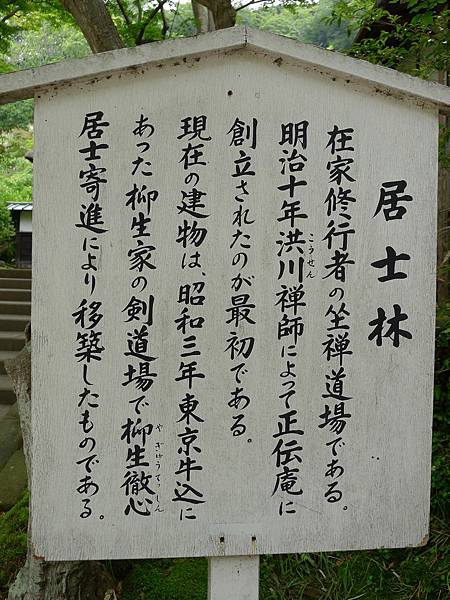 居士林
在家修行者の坐禅道場である。
明治十年洪川禅師によって正伝庵に
こうせん
創立されたのが最初である。
現在の建物は、昭和三年東京牛込に
あった柳生家の剣道場で柳生徹心
やぎゅうてっしん
居士寄進により移築したものである。